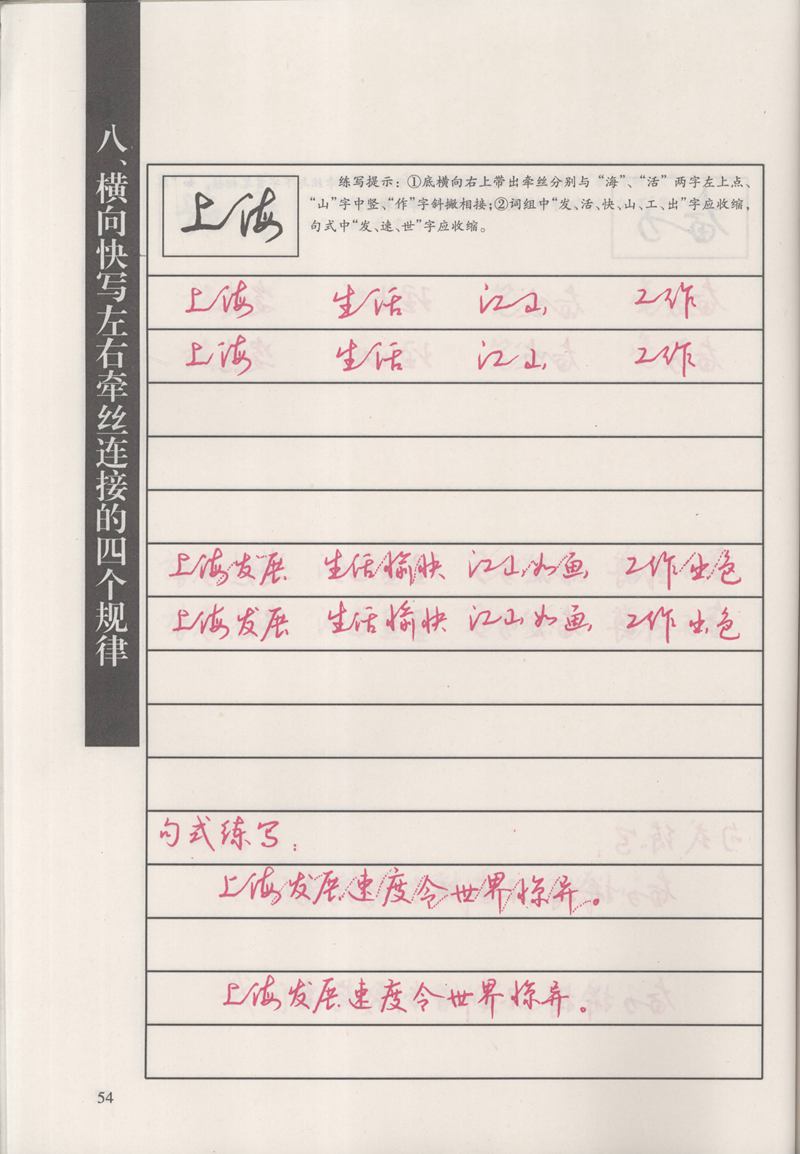 八、横向快写左右牵丝连接的四个规律
上海
练写提示：①底横向右上带出牵丝分别与“海”、“活”两字左上点、
“山”字中竖、“作”字斜撇相接；②词组中“发、活、快、山、工、出”字应收缩，
句式中“发、速、世”字应收缩。
上海 生活 江山 工作
上海 生活 江山 工作
上海发展 生活愉快 江山如画 工作出色
上海发展 生活愉快 江山如画 工作出色
句式练写：
上海发展速度令世界惊异。
上海发展速度令世界惊异。
54